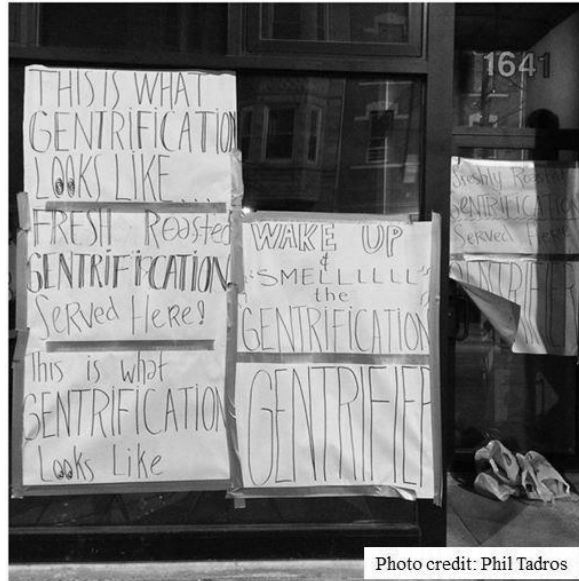 THIS IS WHAT
GENTRIFICATION
LOOKS LIKE ....
FRESH Roasted
GENTRIFICATION
Served Here!
This is what
GENTRIFICATION
Looks Like
WAKE UP
&
"SMELLLLLL"
the
GENTRIFICATION
GENTRIFIER
1641
Freshly Roasted
GENTRIFICATION
Served Here
GENTRIFIER
Photo credit: Phil Tadros